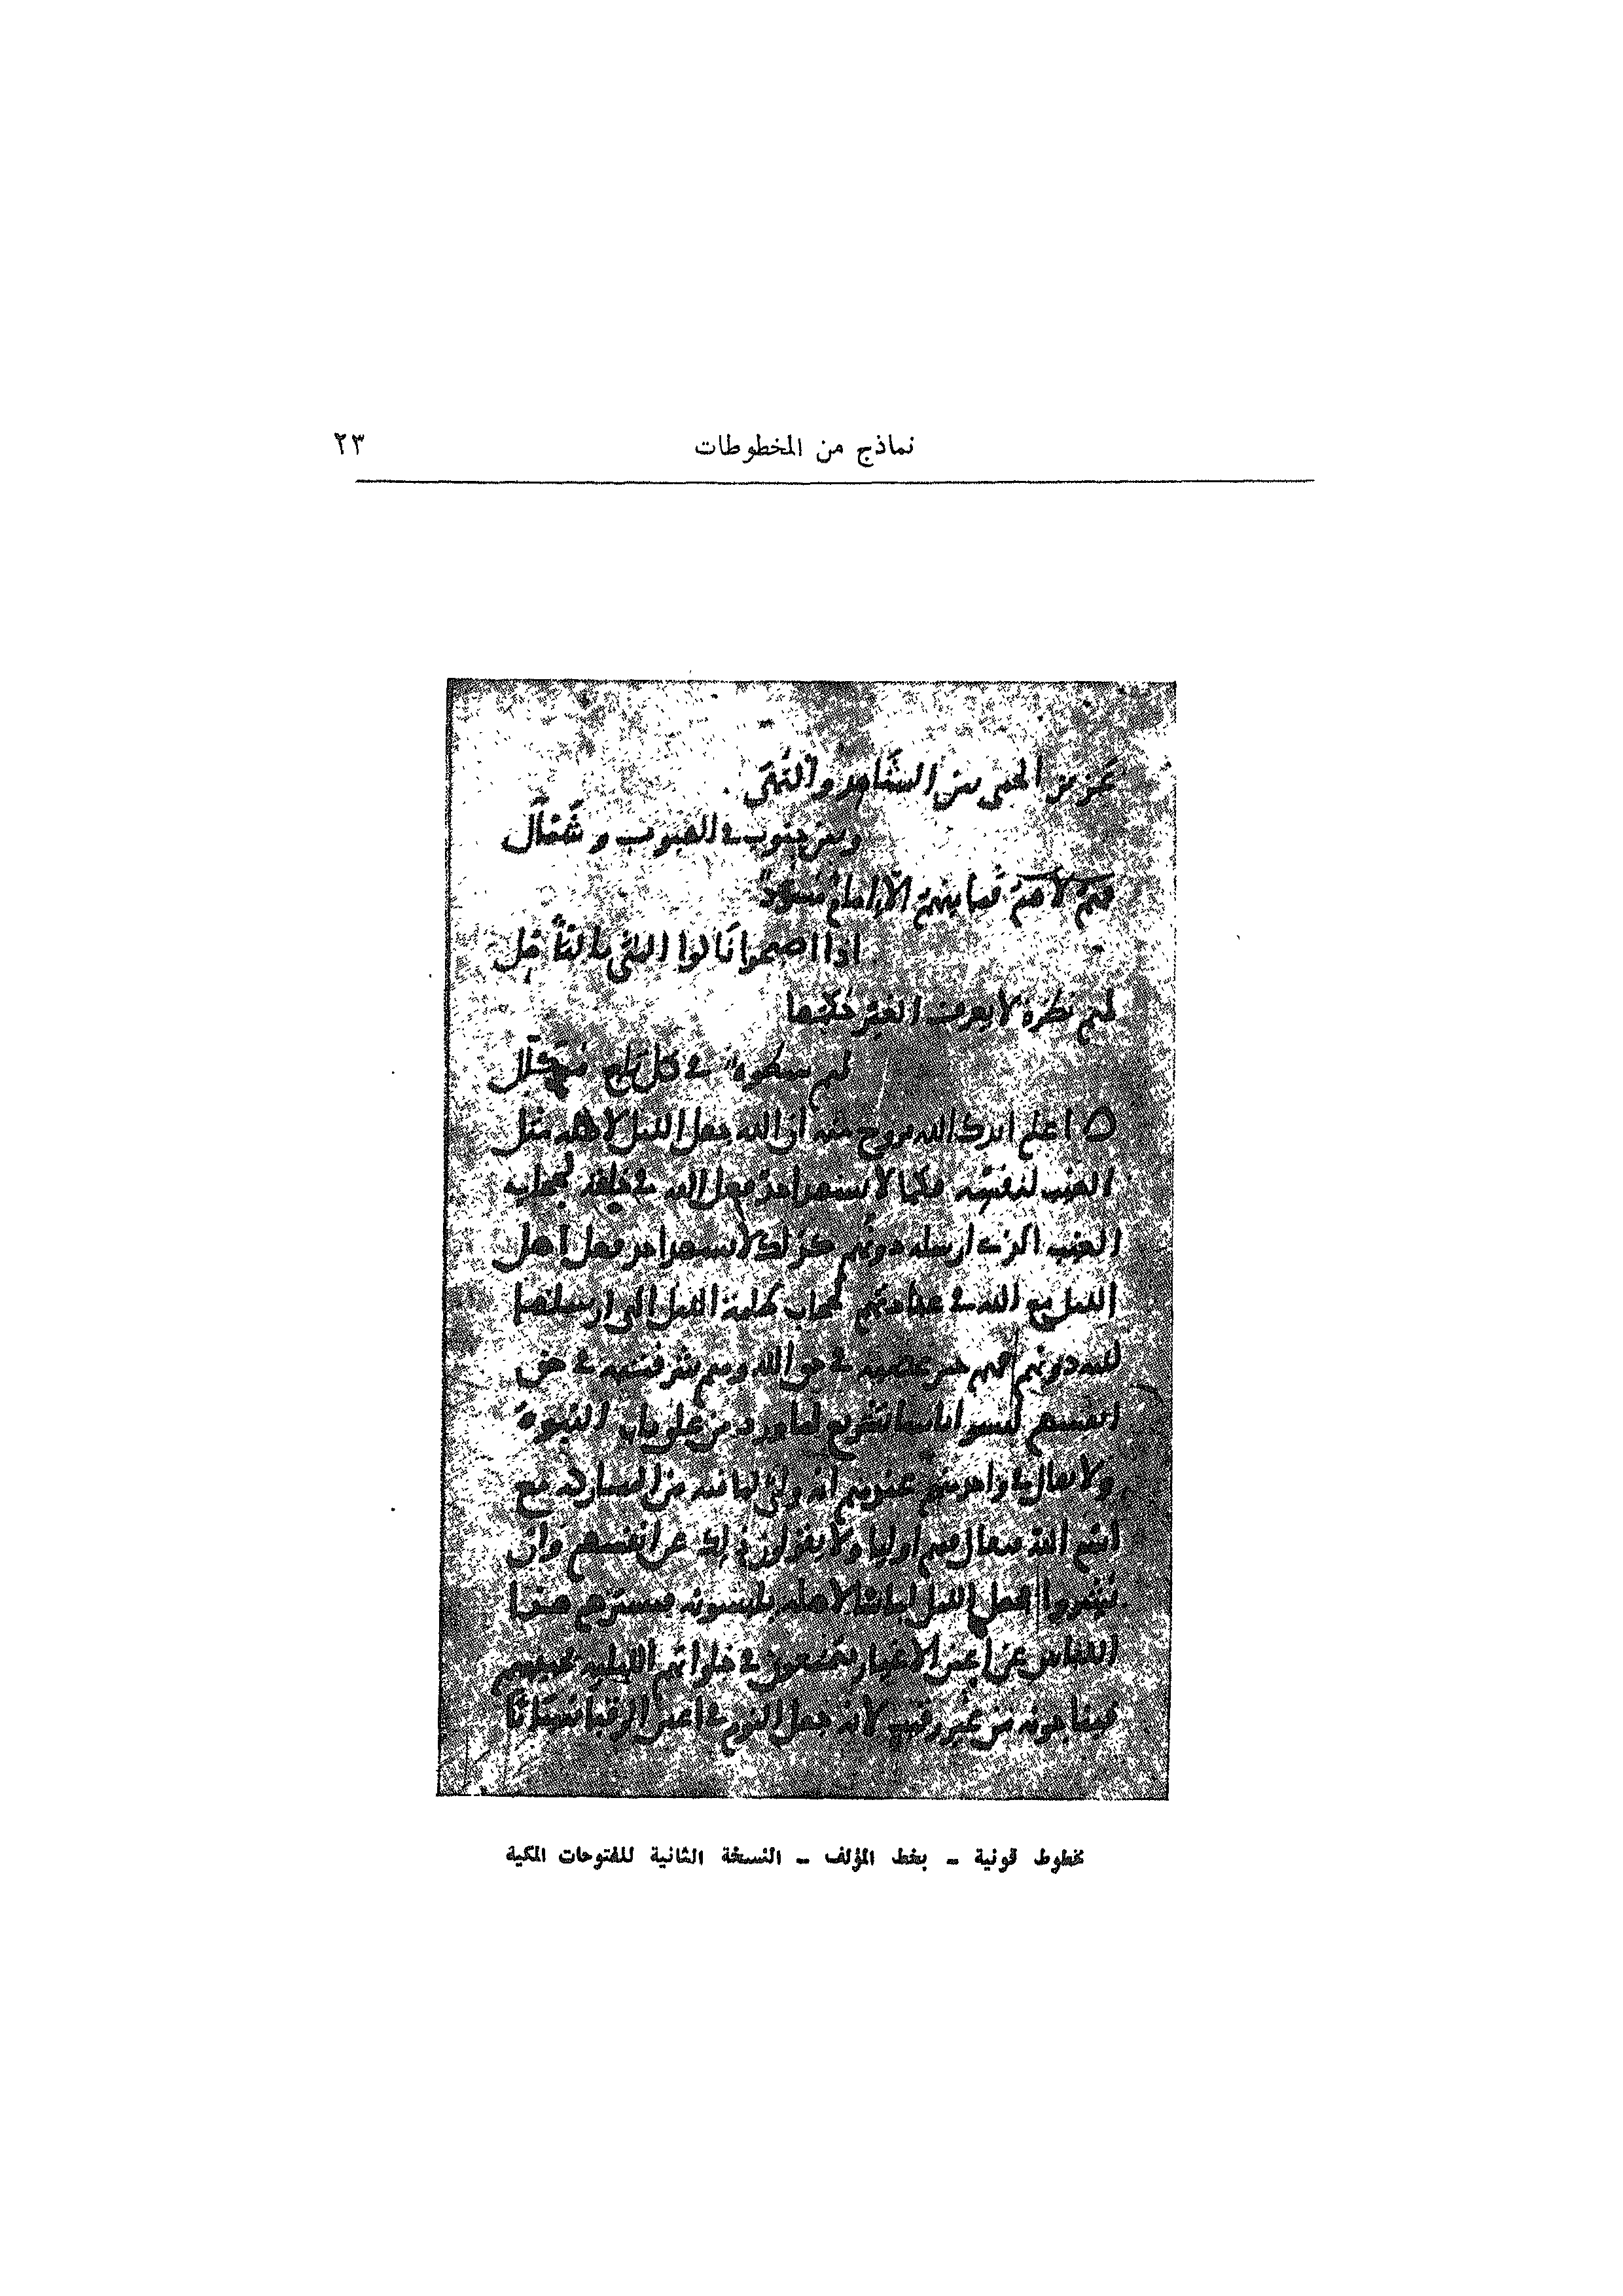 نماذج من المخطوطات ٢٣
عزيز الحمى بين المشاهد والنهى
ومن جنوب في الهبوب وشمأل
فما منهم إلا إمام مسود
اذا اصبحوا نالوا المنى بالتأمل
لهم نظرة لا يعرف الغير حكمها
لهم سطوة في كل تاج مكلل
اعلم ايدك الله بروح منه أن الله جعل الليل لاهله مثل
الغيب لنفسه فكما لا يشهد احد فعل الله في خلقه لحجاب
الغيب الذي ارسله دونهم كذلك لا يشهد احد فعل اهل
الليل مع الله في عبادتهم لحجاب ظلمة الليل التي ارسلها
الله دونهم فهم خير عصبة في حق الله وهم شر فتية في حق
انفسهم ليسوا بانبياء تشريع لما ورد من غلق باب النبوة
ولا يقال في واحد منهم عندهم انه ولي لما فيه من المشاركة مع
اسم الله فيقال فيهم اوليا ولا يقولون ذلك عن انفسهم وان
بشروا فجعل الليل لباسا لاهله يلبسونه فيسترهم هذا
اللباس عن اعين الاغيار يتمتعون في خلواتهم الليلية بحبيبهم
فيناجونه من غير رقيب لانه جعل النوم في اعين الرقبا سباتا
مخطوط قونية – بخط المؤلف – النسخة الثانية للفتوحات المكية